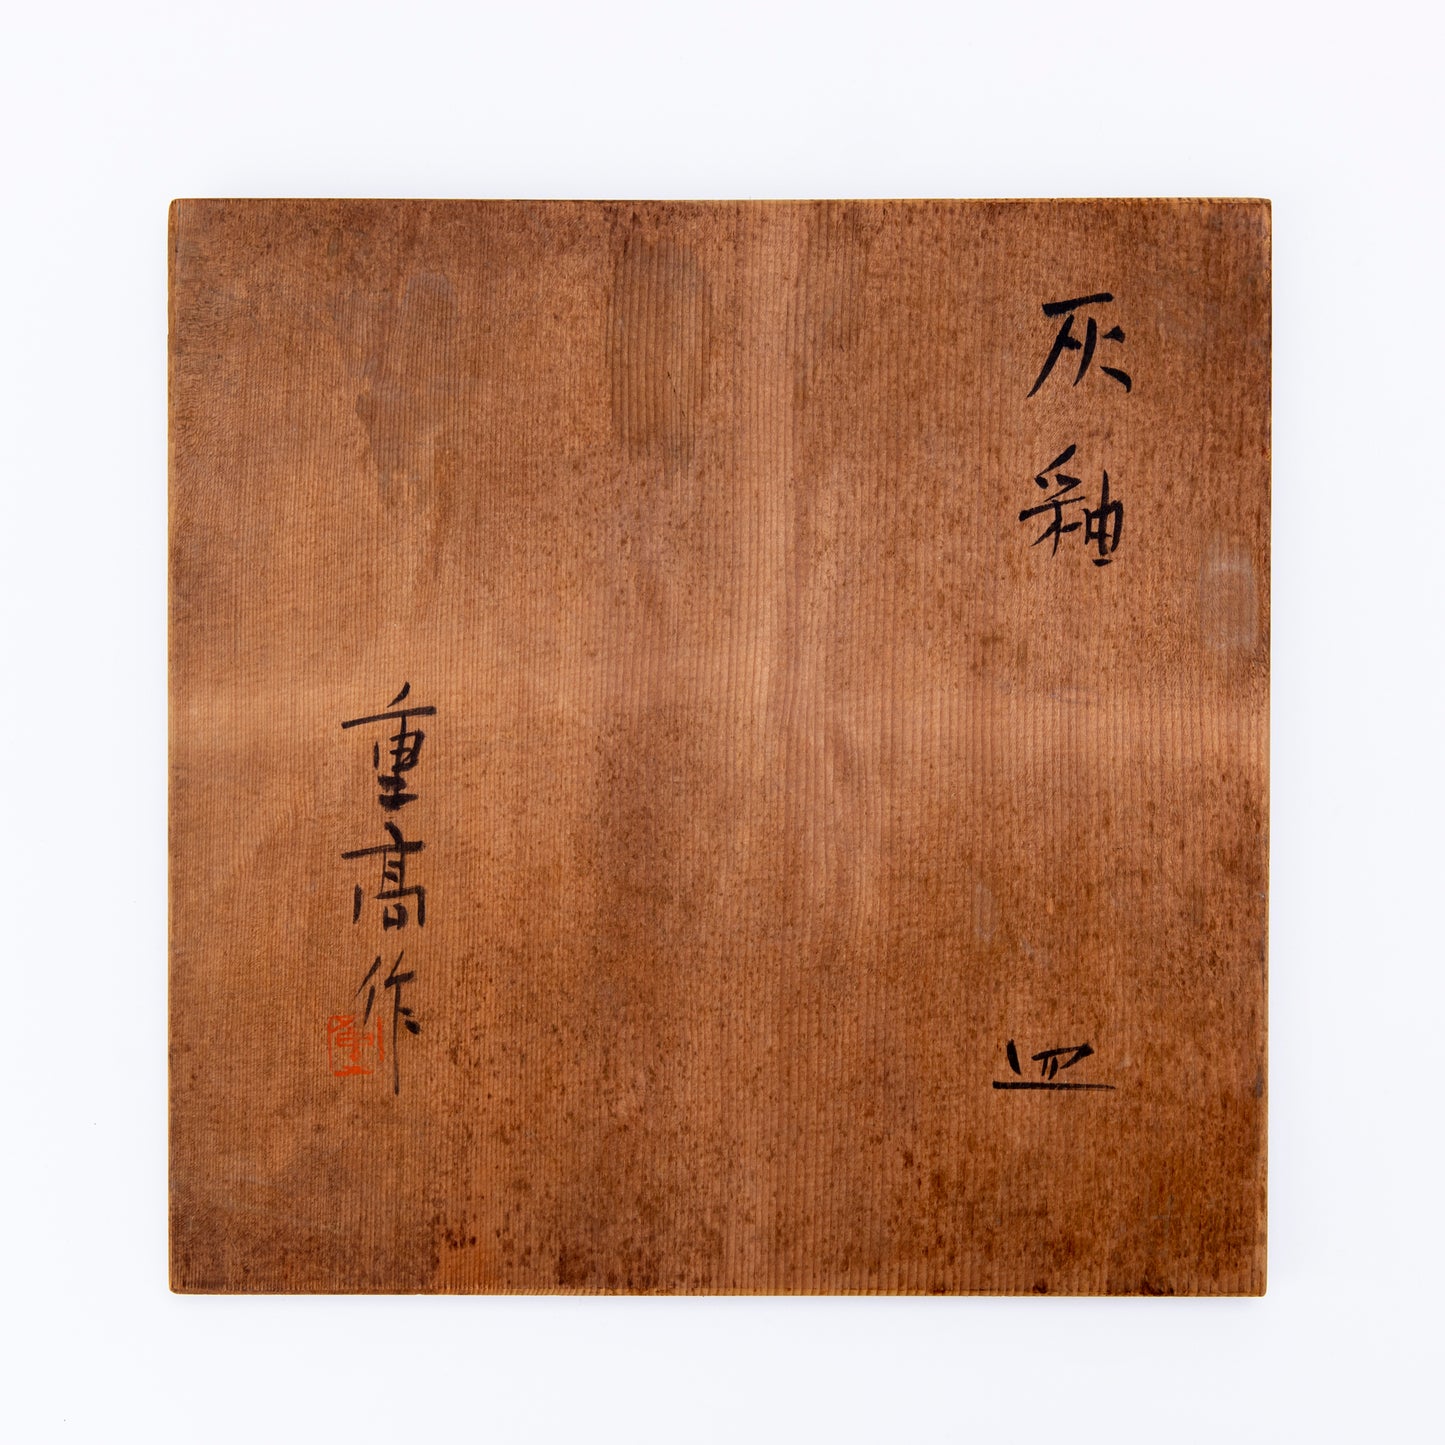 灰釉 皿
重高作